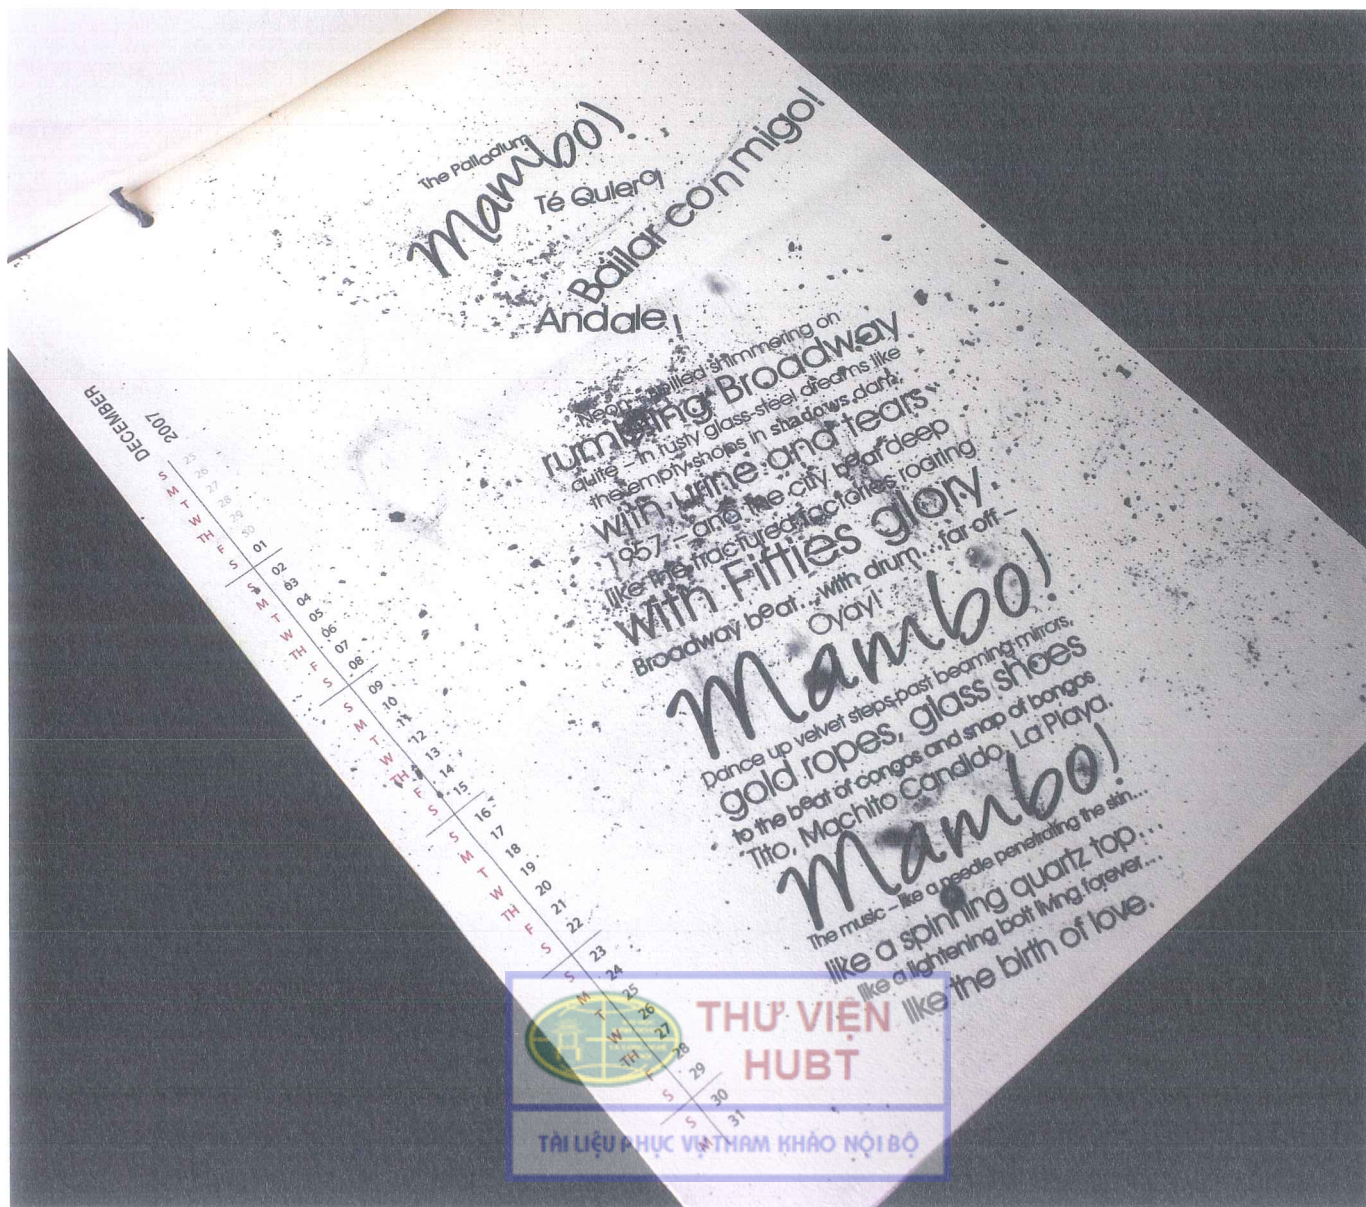 The Palladium
Mambo!
Té Quiero!
Bailar conmigo!
Andale!
Neon spilled shimmering on
rumbling Broadway
quite – in rusty glass-steel dreams like
the empty shops in shadows dark,
with urine and tears
1957 – and the city beat deep
like the fractured factories roaring
with Fifties glory.
Broadway beat...with drum...far off –
Oyay!
Mambo!
Dance up velvet steps past beaming mirrors,
gold ropes, glass shoes
to the beat of congos and snap of bongos
Tito, Machito Candido, La Playa.
Mambo!
The music – like a needle penetrating the skin...
like a spinning quartz top...
like a lightening bolt living forever...
like the birth of love.
DECEMBER
2007
S 25
M 26
T 27
W 28
TH 29
F 30
S 01
S 02
M 03
T 04
W 05
TH 06
F 07
S 08
S 09
M 10
T 11
W 12
TH 13
F 14
S 15
S 16
M 17
T 18
W 19
TH 20
F 21
S 22
S 23
M 24
T 25
W 26
TH 27
F 28
S 29
S 30
M 31
THƯ VIỆN
HUBT
TÀI LIỆU PHỤC VỤ THAM KHẢO NỘI BỘ